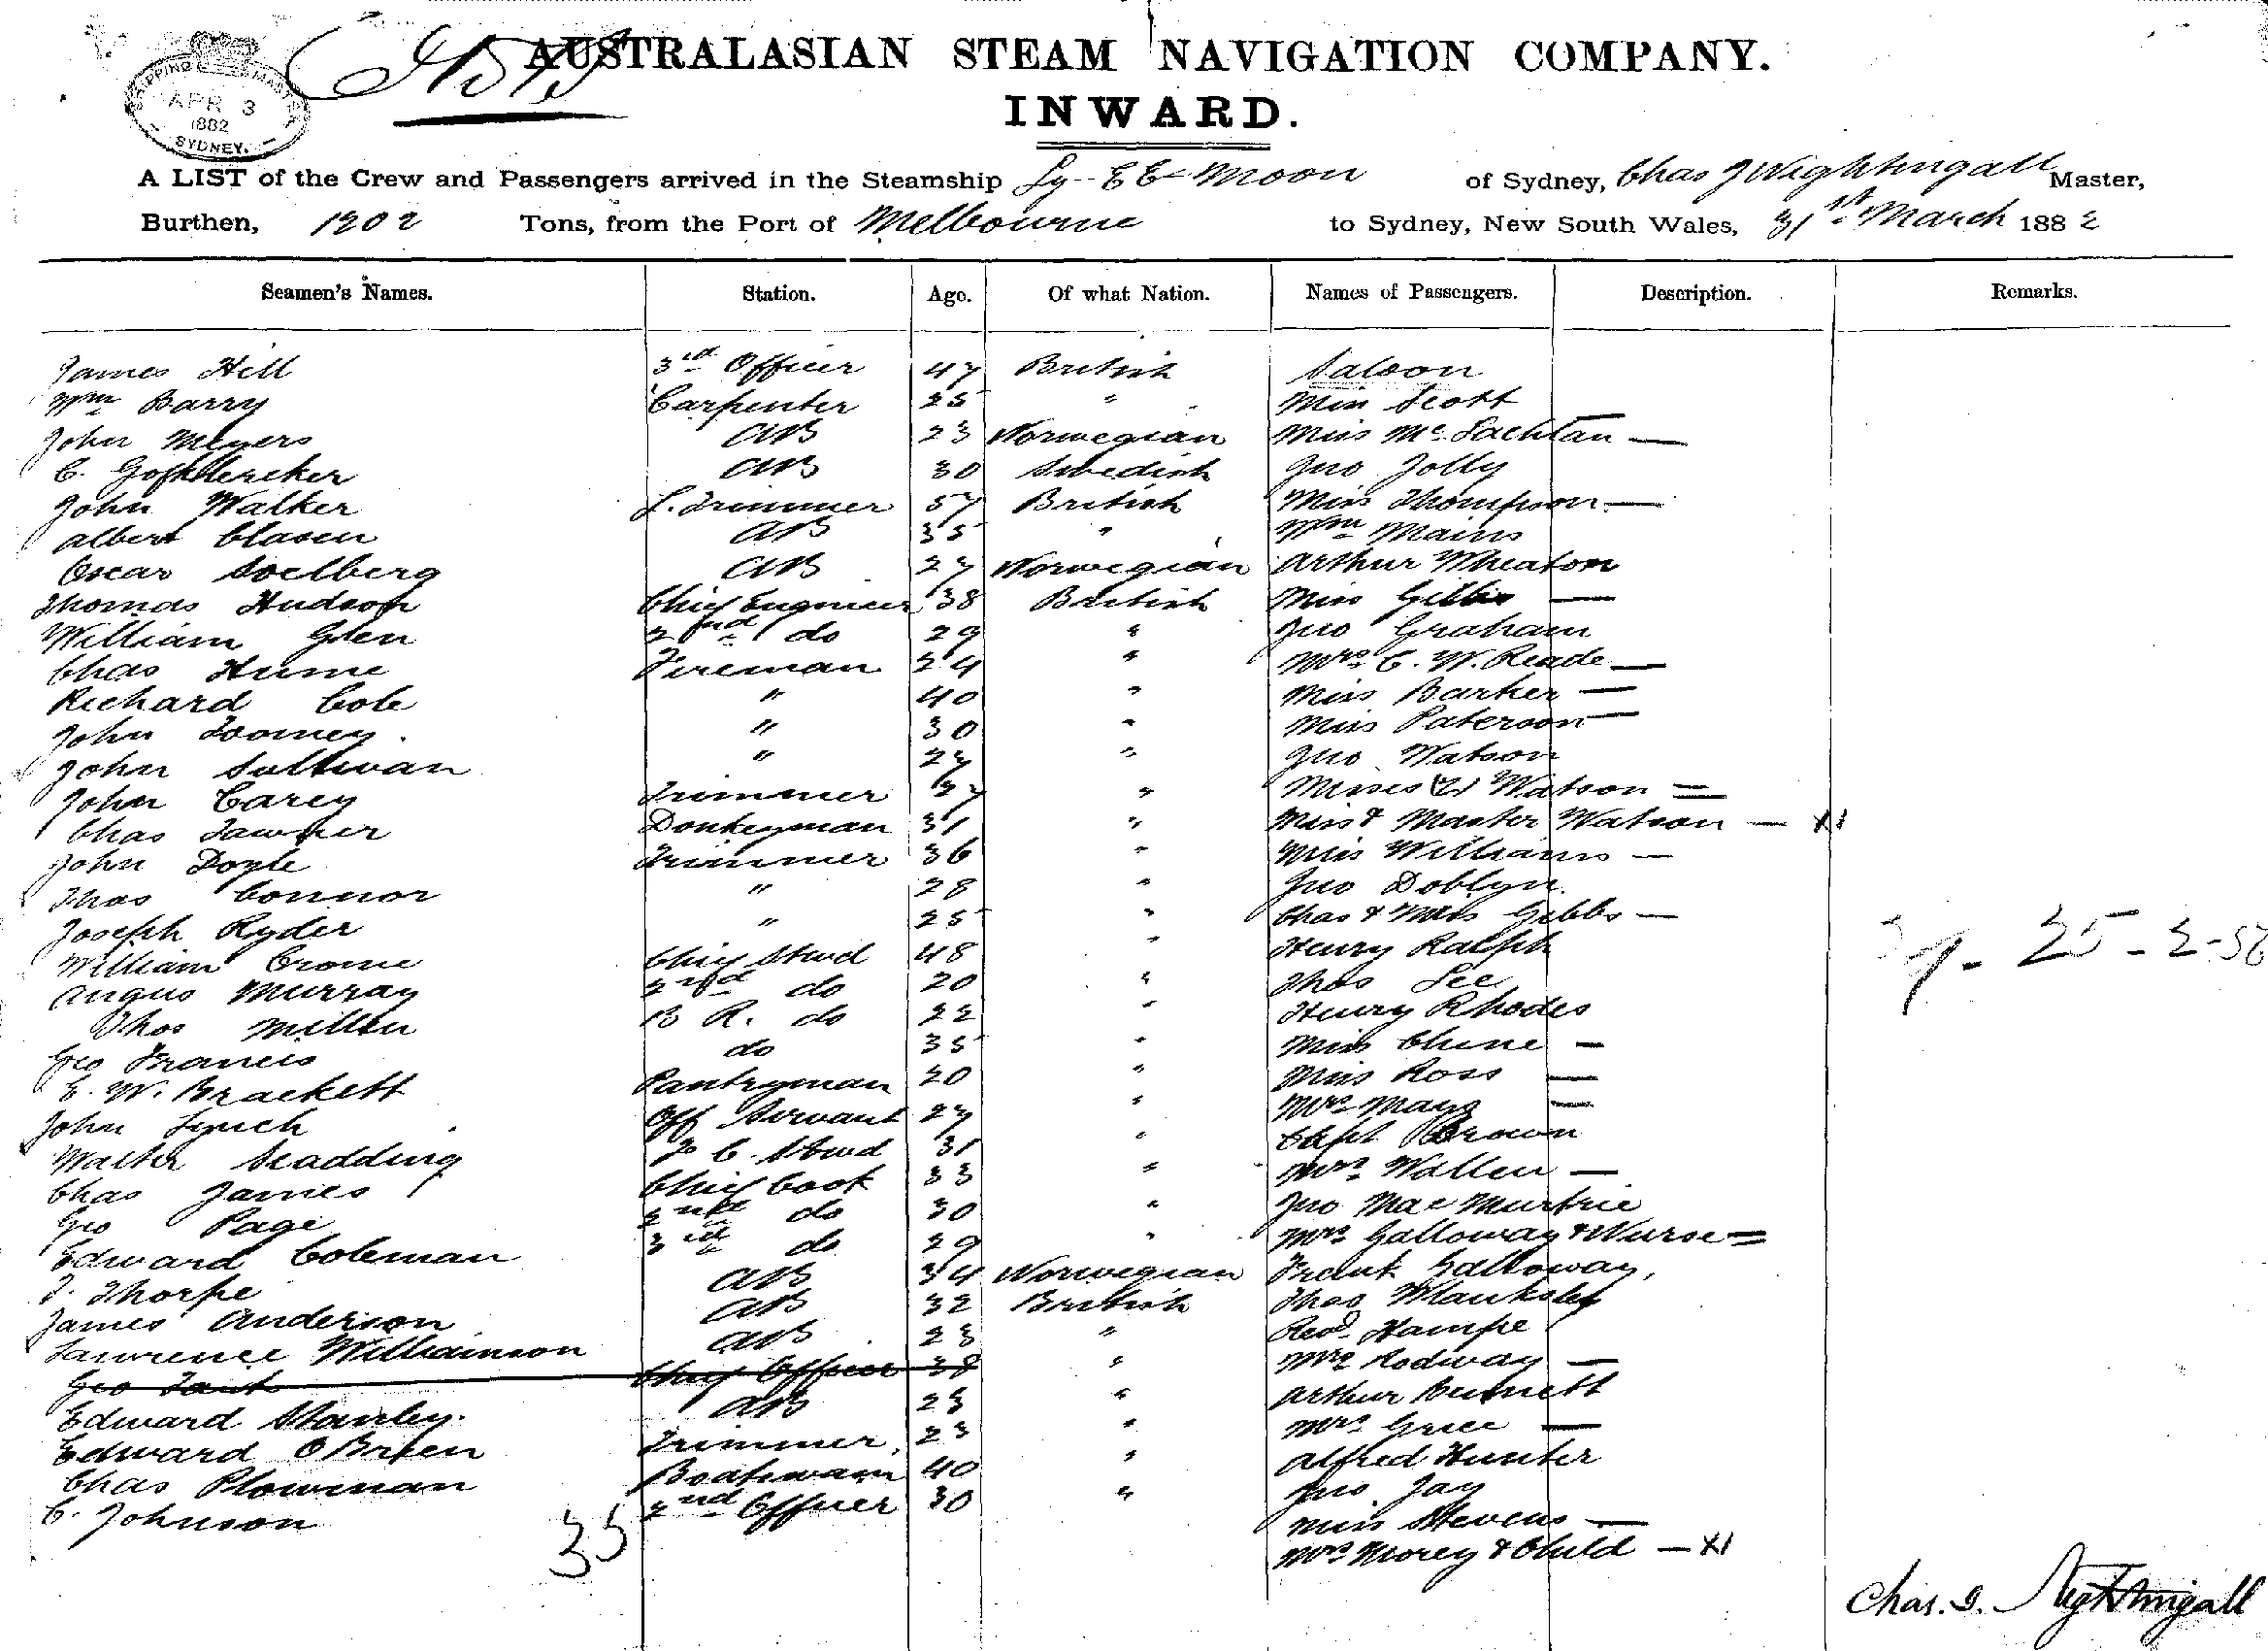 AUSTRALASIAN STEAM NAVIGATION COMPANY.
INWARD.
SHIPPING MASTER APR 3 1882 SYDNEY.
A LIST of the Crew and Passengers arrived in the Steamship Ly-EE-Moon of Sydney, Chas J Nightingall Master,
Burthen, 1202 Tons, from the Port of Melbourne to Sydney, New South Wales, 31st March 1882
Seamen's Names. Station. Age. Of what Nation. Names of Passengers. Description. Remarks.
James Hill 3rd Officer 47 British Saloon
Wm Barry Carpenter 25 " Miss Scott
John Meyers AB 23 Norwegian Miss McLachlan —
C. AB 30 Swedish Jno Jolly
John Walker L. Trimmer 57 British Miss Thompson —
Albert Clasen AB 35 " Wm Mains
Oscar Soelberg AB 27 Norwegian Arthur Wheaton
Thomas Hudson Chief Engineer 38 British Miss Gibbs —
William Glen 2nd do 29 " Jno Graham
Chas Hume Fireman 24 " Mrs C. W. Reade —
Richard Cole " 40 " Miss Barker —
John Toomey. " 30 " Miss Paterson —
John Sullivan " 27 " Jno Watson
John Carey Trimmer 37 " Misses (2) Watson =
Chas Donkeyman 31 " Miss & Master Watson — X1
John Doyle Trimmer 36 " Miss Williams —
Thos Connor " 28 " Jno Doblyn.
Joseph Ryder " 25 " Chas & Mrs Gibbs —
William Crome Chief Stwd 48 " Henry Ralph
Angus Murray 2nd do 20 " Thos Lee
Thos Miller B R. do 22 " Henry Rhodes
Geo Francis do 35 " Miss Chine —
E. W. Brackett Pantryman 20 " Miss Ross —
John Lynch Off Servant 27 " Mrs Mays —
Walter Scadding F C. Stwd 31 " Capt Brown
Chas James Chief Cook 33 " Mrs Wallen —
Geo Page 2nd do 30 " Jno MacMurtrie
Edward Coleman 3rd do 29 " Mrs Galloway & Nurse =
T. Thorpe AB 34 Norwegian Frank Galloway,
James Anderson AB 32 British Thos
Lawrence Williamson AB 23 " Revd Hampe
Geo Chief Officer 38 " Mrs Rodway —
Edward Stanley. AB 23 " Arthur Bennett
Edward O'Brien Trimmer, 23 " Mrs Grice —
Chas Plowman Boatswain 40 " Alfred Hunter
C. Johnson 2nd Officer 30 " Jno Jay
Miss Stevens —
35 Mrs Morey & Child — X1
Chas. J. Nightingall